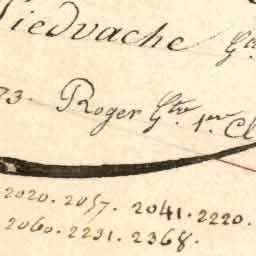 Piedvache G
73. Roger Gtte 1re Cl
2020. 2057. 2041. 2220.
2060. 2231. 2368.